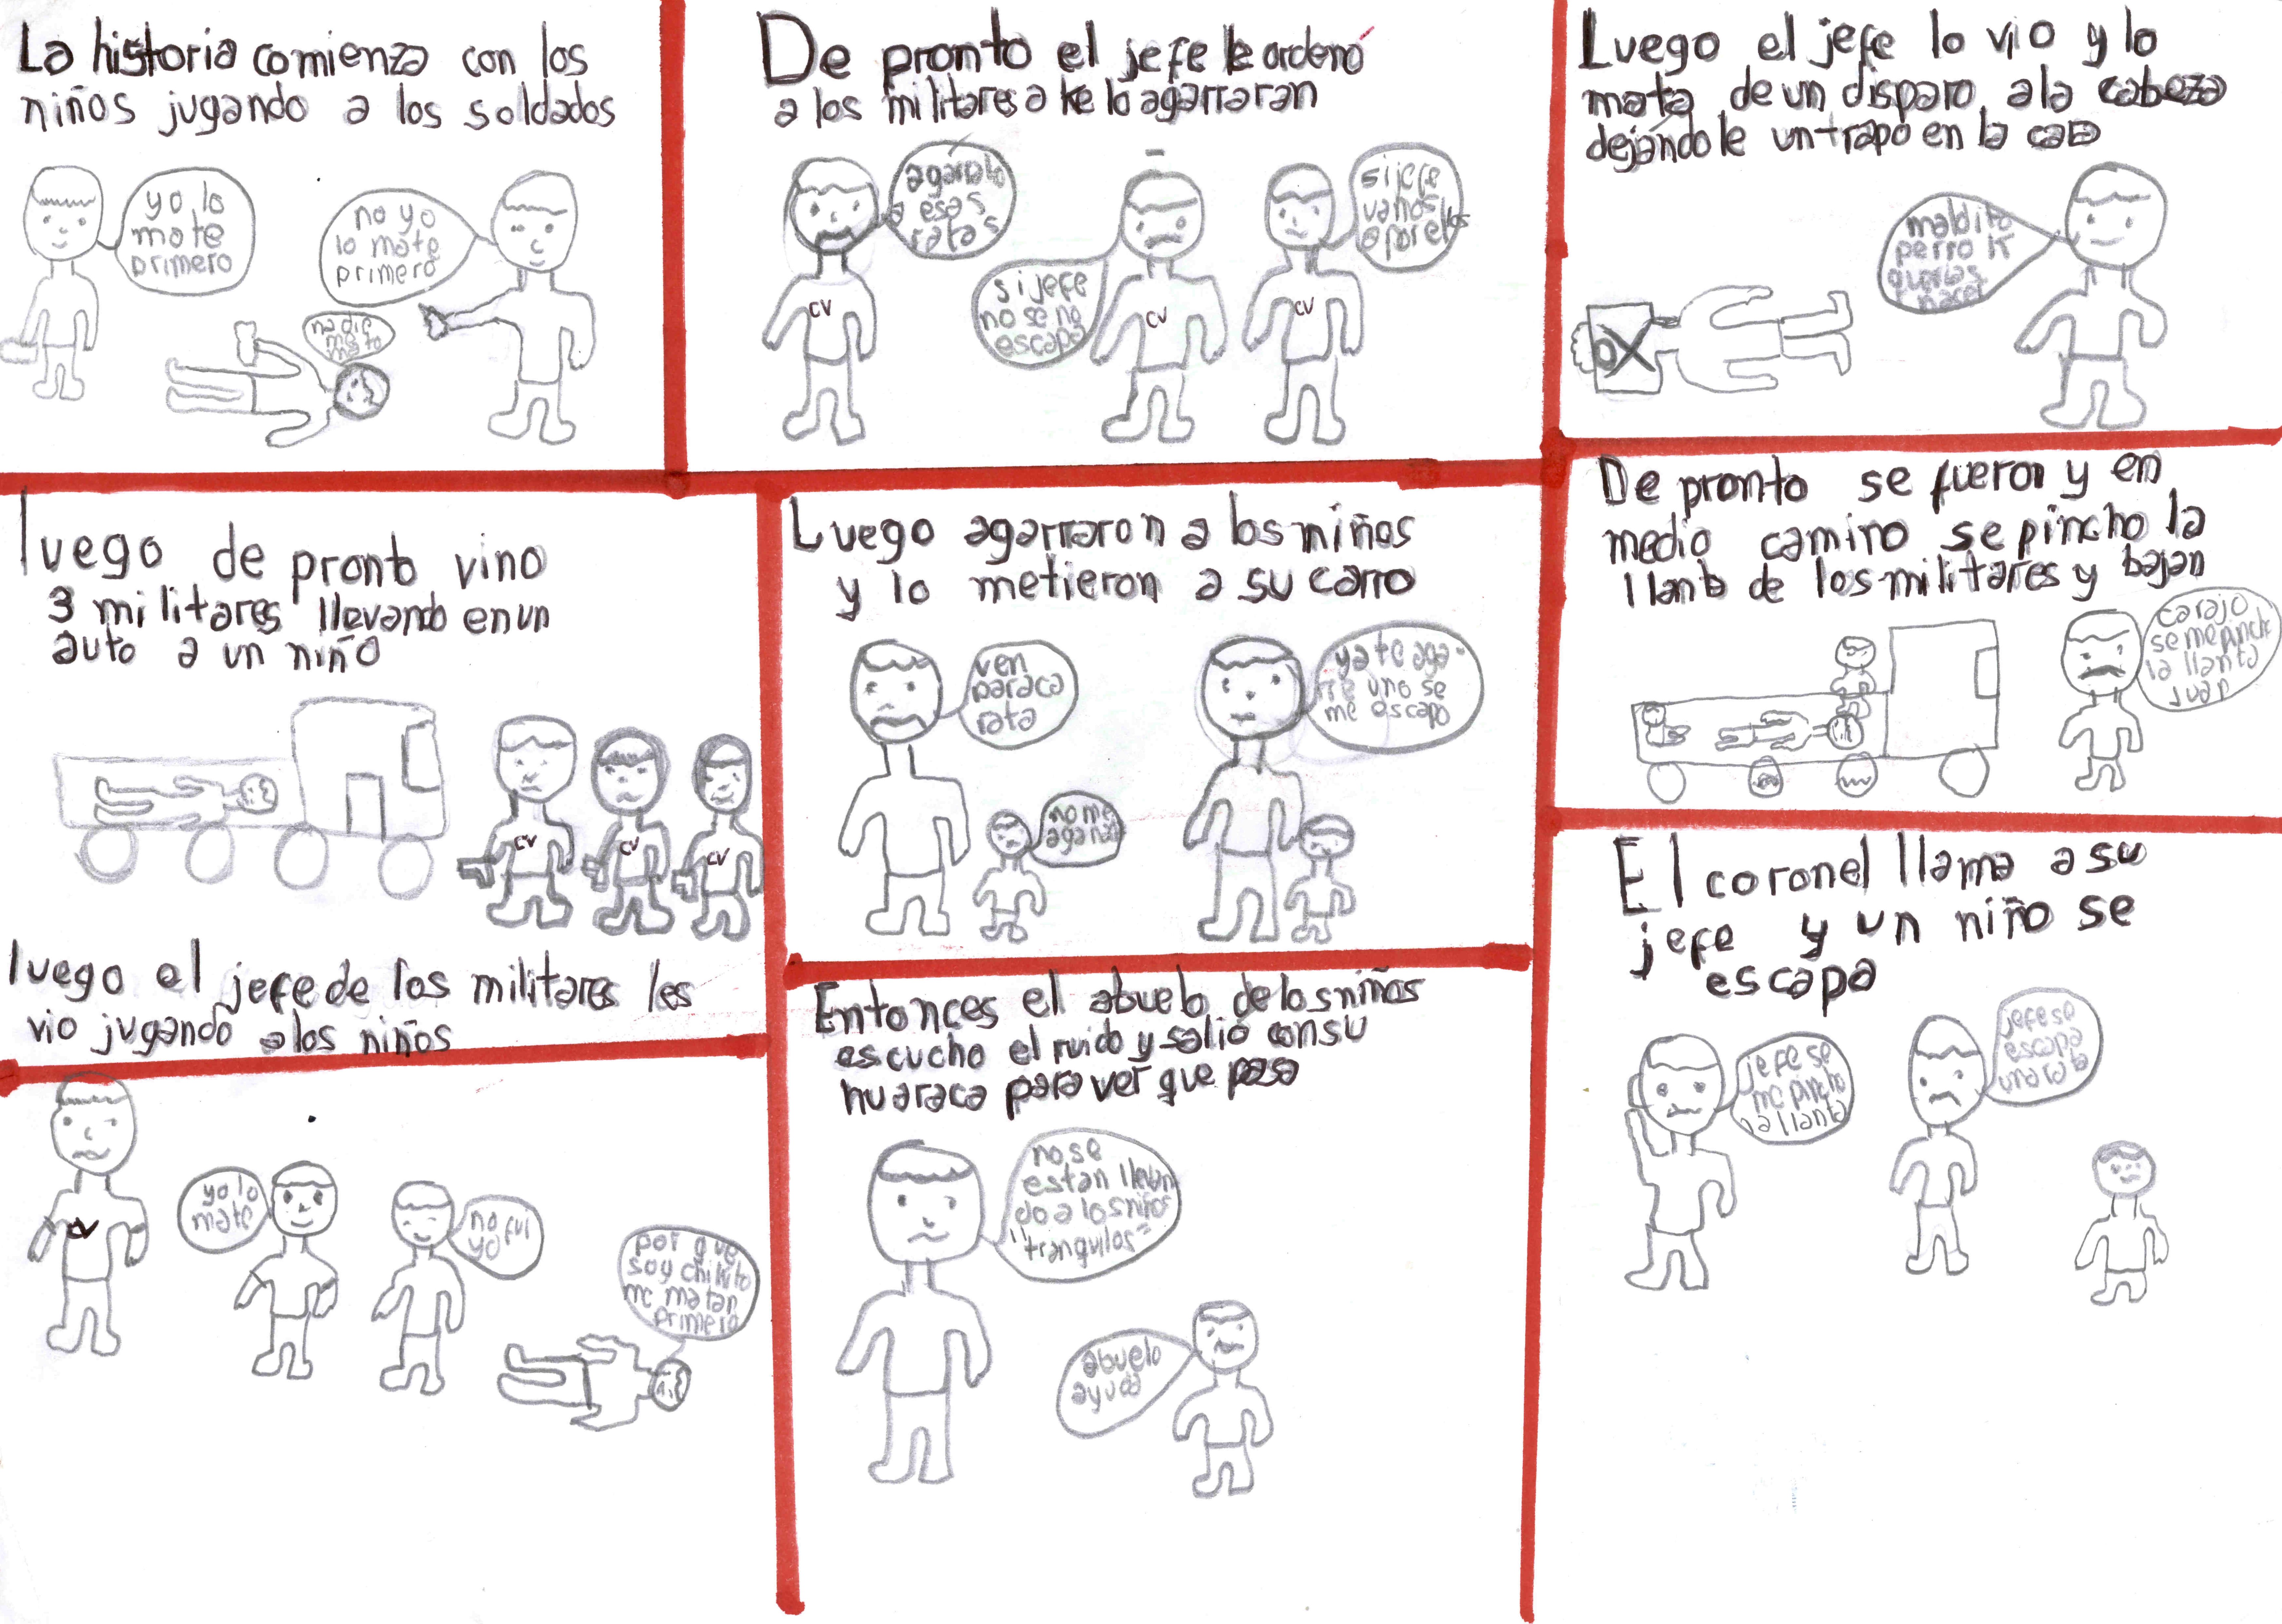 La historia comienza con los
niños jugando a los soldados
yo lo
mate
primero
no yo
lo mate
primero
nadie
me
mato
luego de pronto vino
3 militares llevando en un
auto a un niño
CV
CV
CV
luego el jefe de los militares les
vio jugando a los niños
CV
yo lo
mate
no fui
yo
por que
soy chikito
me matan
primero
De pronto el jefe le ordenó
a los militares a ke lo agarraran
agarralo
a esas
ratas
si jefe
no se no
escapa
si jefe
vamos
a por ellos
CV
CV
CV
Luego agarraron a los niños
y lo metieron a su carro
ven
paraca
rata
no me
agarra
ya te aga-
rre uno se
me escapo
Entonces el abuelo de los niños
escucho el ruido y salió con su
huaraca para ver que pasa
no se
estan llevan
do a los niños
"tranquilos"
abuelo
ayuda
Luego el jefe lo vio y lo
mata de un disparo a la cabeza
dejándole un trapo en la
maldito
perro
querias
hacer
De pronto se fueron y en
medio camino se pincho la
llanta de los militares y bajan
carajo
se me pincho
la llanta
Juan
El coronel llama a su
jefe y un niño se
escapa
jefe se
me pincho
la llanta
jefe se
escapa
una rata